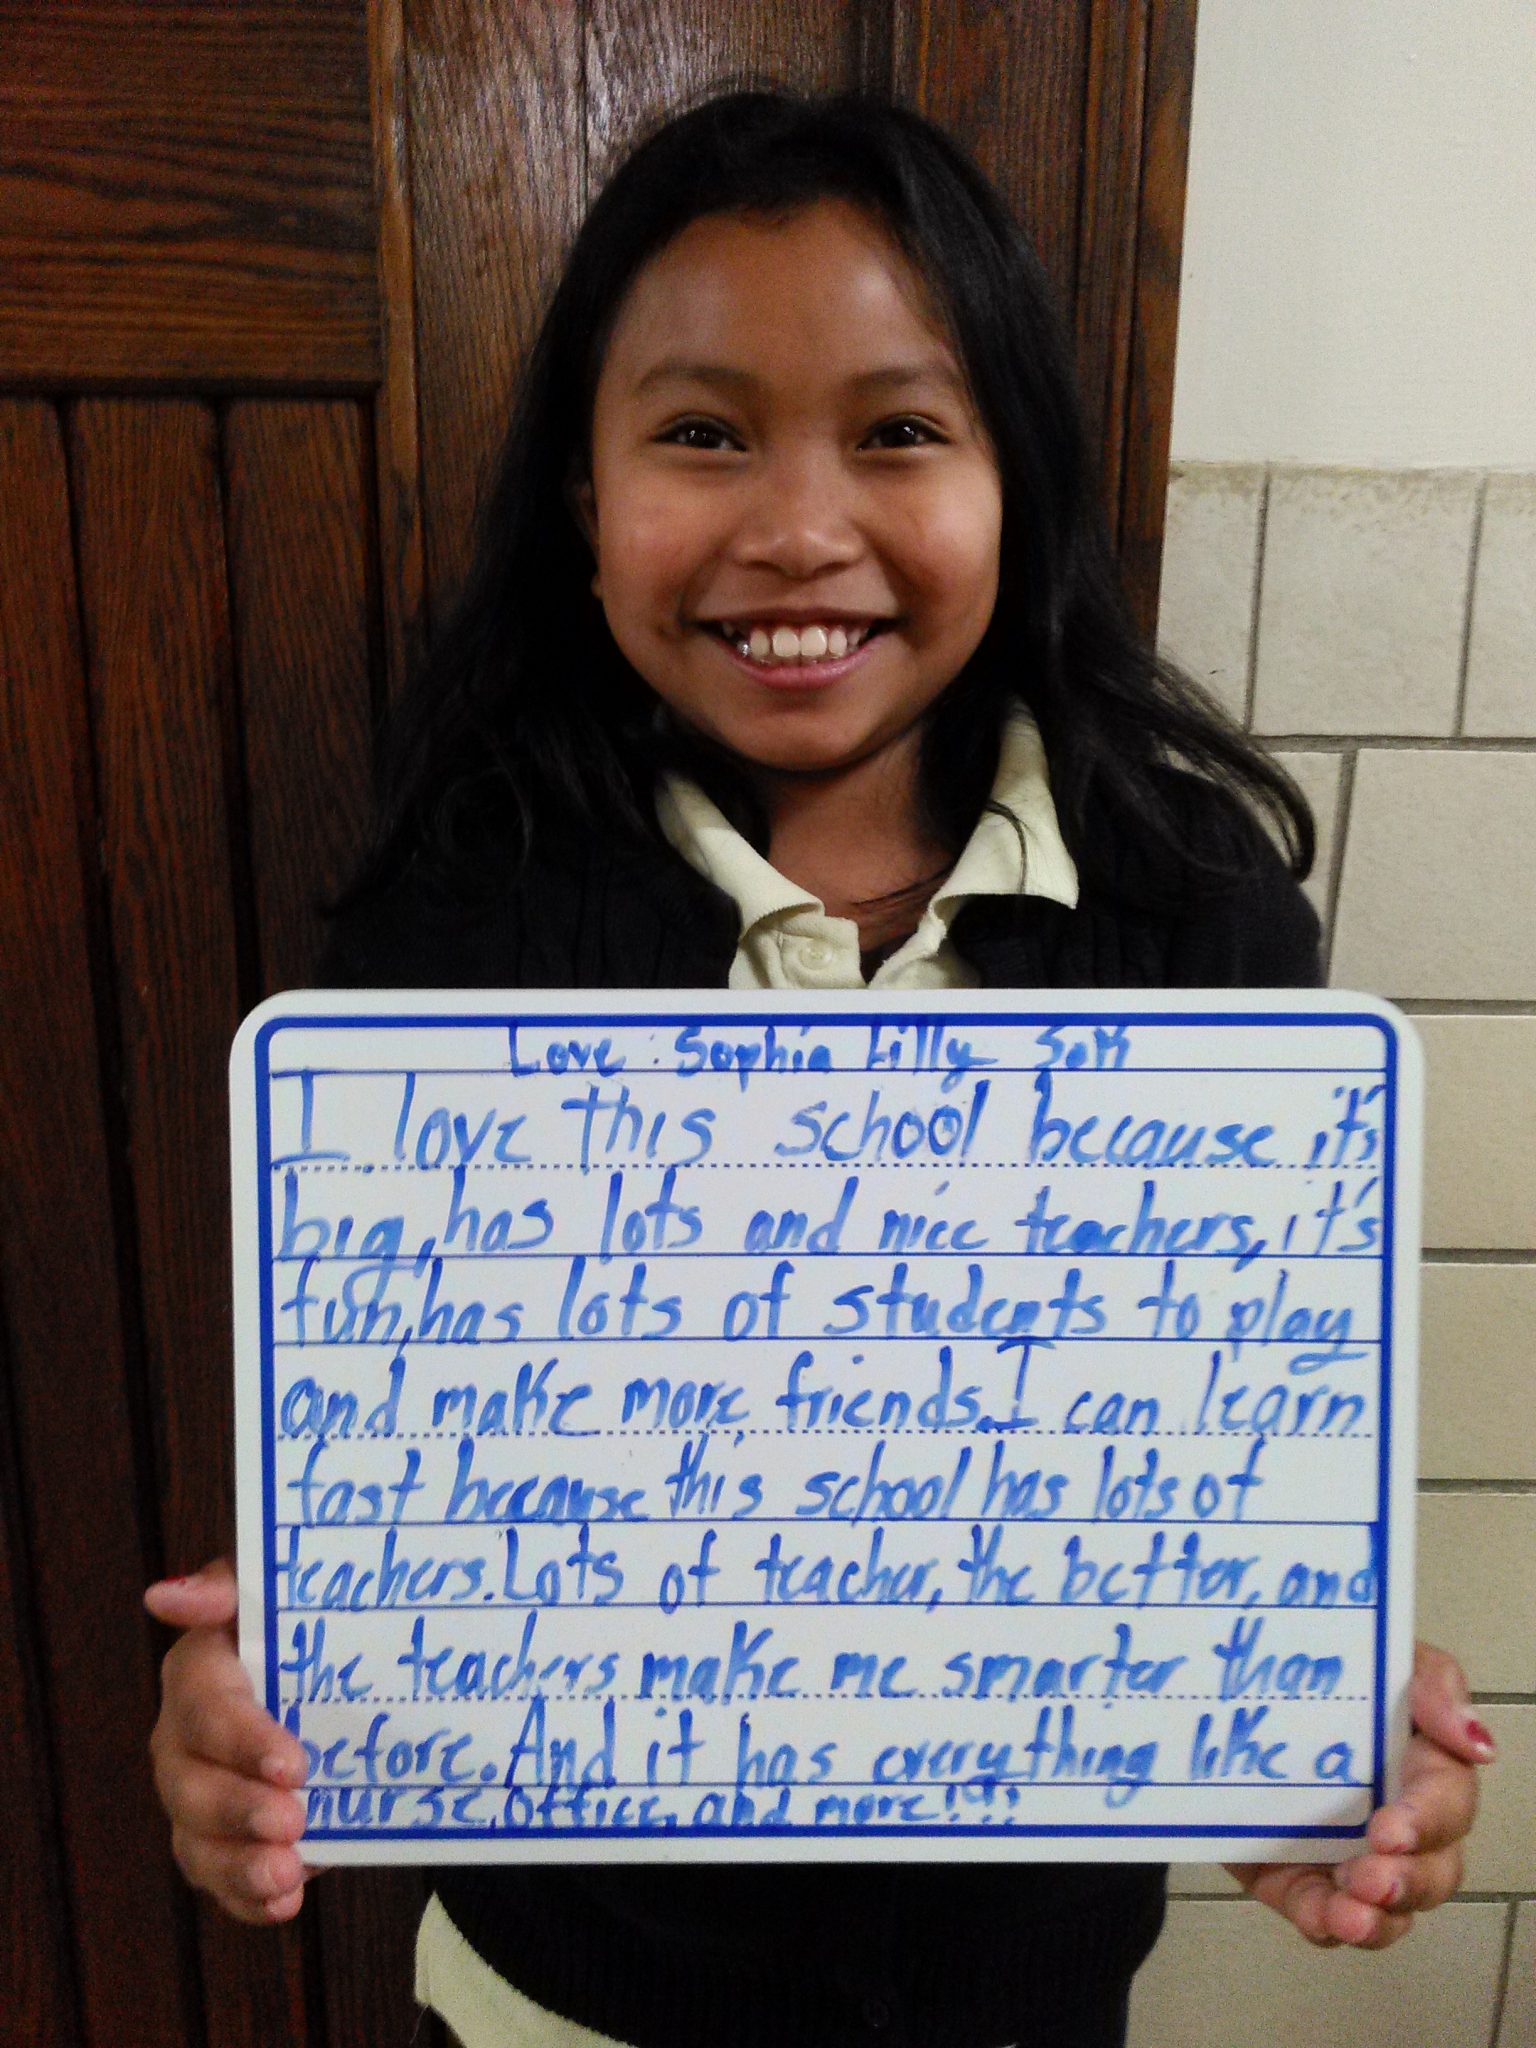 Love : Sophia Lilly Sok
I love this school because it's
big, has lots and nice teachers, it's
fun, has lots of students to play
and make more friends. I can learn
fast because this school has lots of
teachers. Lots of teacher, the better, and
the teachers make me smarter than
before. And it has everything like a
nurse, office, and more!!!!